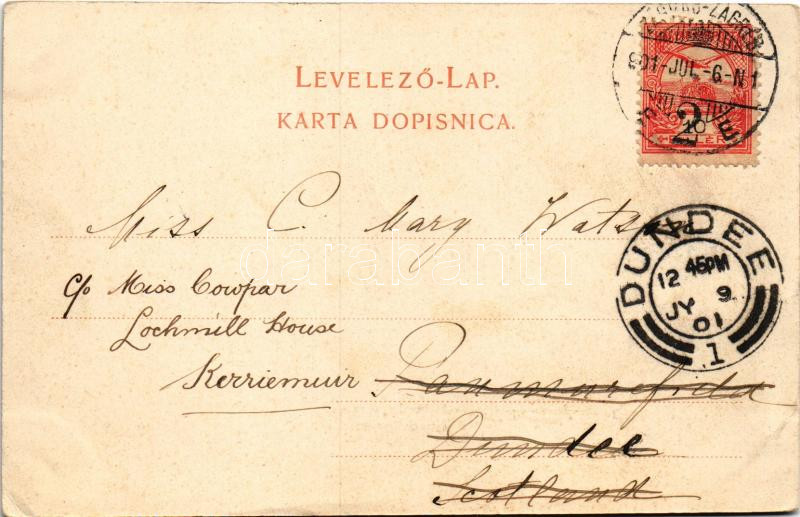 LEVELEZŐ-LAP.
KARTA DOPISNICA.
901-JUL-6-N1
10
FILLÉR
2
Miss C. Mary Watson
c/o Miss Cowpar
Lochmill House
Kerriemuir
Panmurefield
Dundee
Scotland
DUNDEE
12 45PM
JY 9
01
1
darabanth